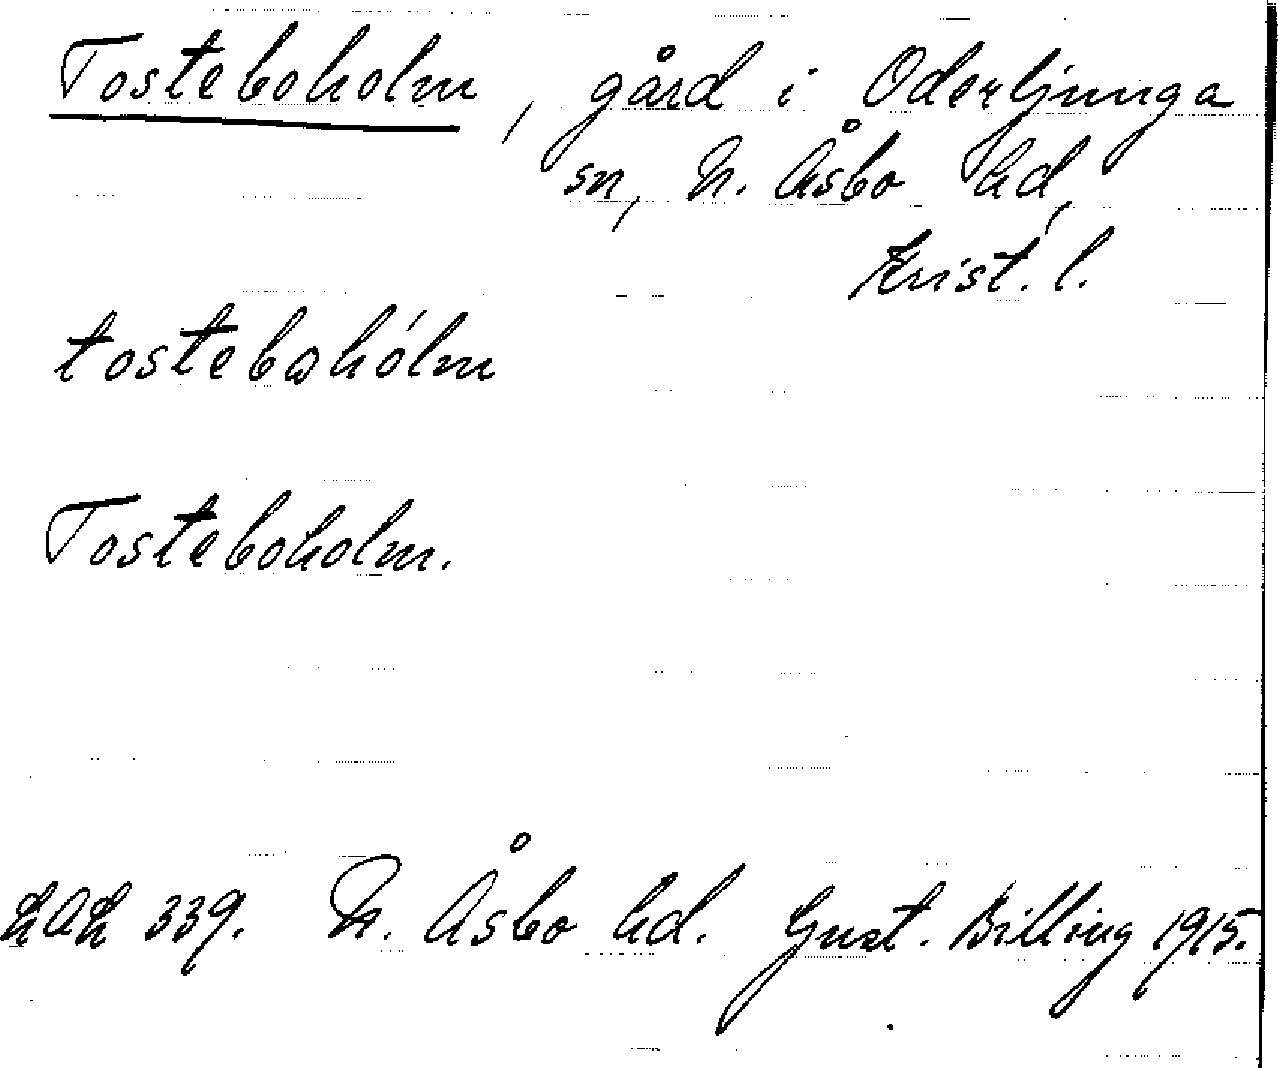 Tosteboholm, gård i Oderljunga
sn, N. Åsbo hd,
Krist. l.
tostebohólm
Tosteboholm.
LAL 339. N. Åsbo hd. Gust. Billing 1915.